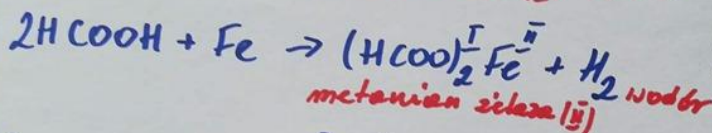 2HCOOH + Fe → (HCOO)₂ᴵ Feᴵᴵ + H₂ wodór
metanian żelaza (II)